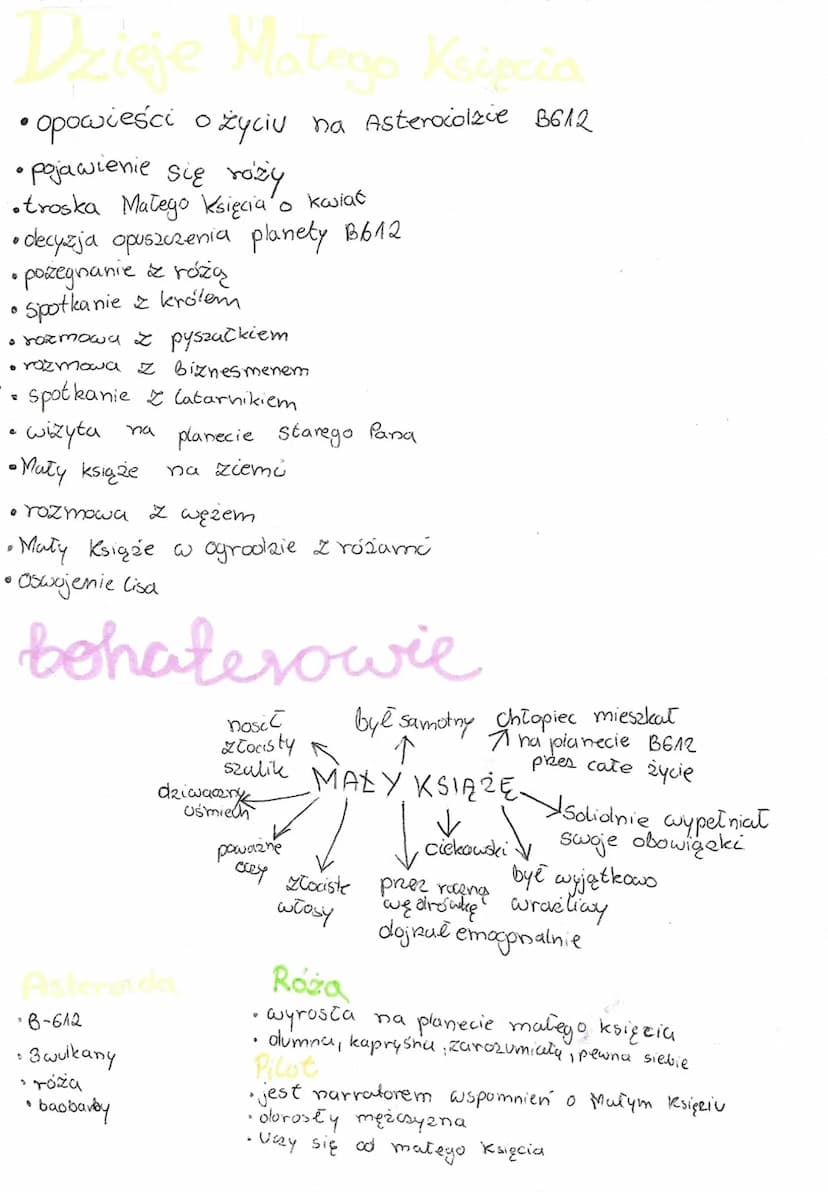 Dzieje Małego Księcia
• opowieści o życiu na Asteroidzie B612
• pojawienie się róży
• troska Małego Księcia o kwiat
• decyzja opuszczenia planety B612
• pożegnanie z różą
• spotkanie z królem
• rozmowa z pyszałkiem
• rozmowa z biznesmenem
• spotkanie z latarnikiem
• wizyta na planecie Starego Pana
• Mały książe na ziemi
• rozmowa z wężem
• Mały Książe w ogrodzie z różami
• Oswojenie lisa
bohaterowie
nosił
złocisty
szalik
był samotny
chłopiec mieszkał
na planecie B612
przez całe życie
MAŁY KSIĄŻĘ
dziwaczny
uśmiech
Solidnie wypełniał
swoje obowiązki
poważne
oczy
ciekawski
złociste
włosy
przez roczną
wędrówkę
dojrzał emocjonalnie
był wyjątkowo
wrażliwy
Asteroida
• B-612
• 3 wulkany
• róża
• baobaby
Róża
• wyrosła na planecie małego księcia
• dumna, kapryśna, zarozumiała, pewna siebie
Pilot
• jest narratorem wspomnień o Małym Księciu
• dorosły mężczyzna
• Uczy się od małego Księcia